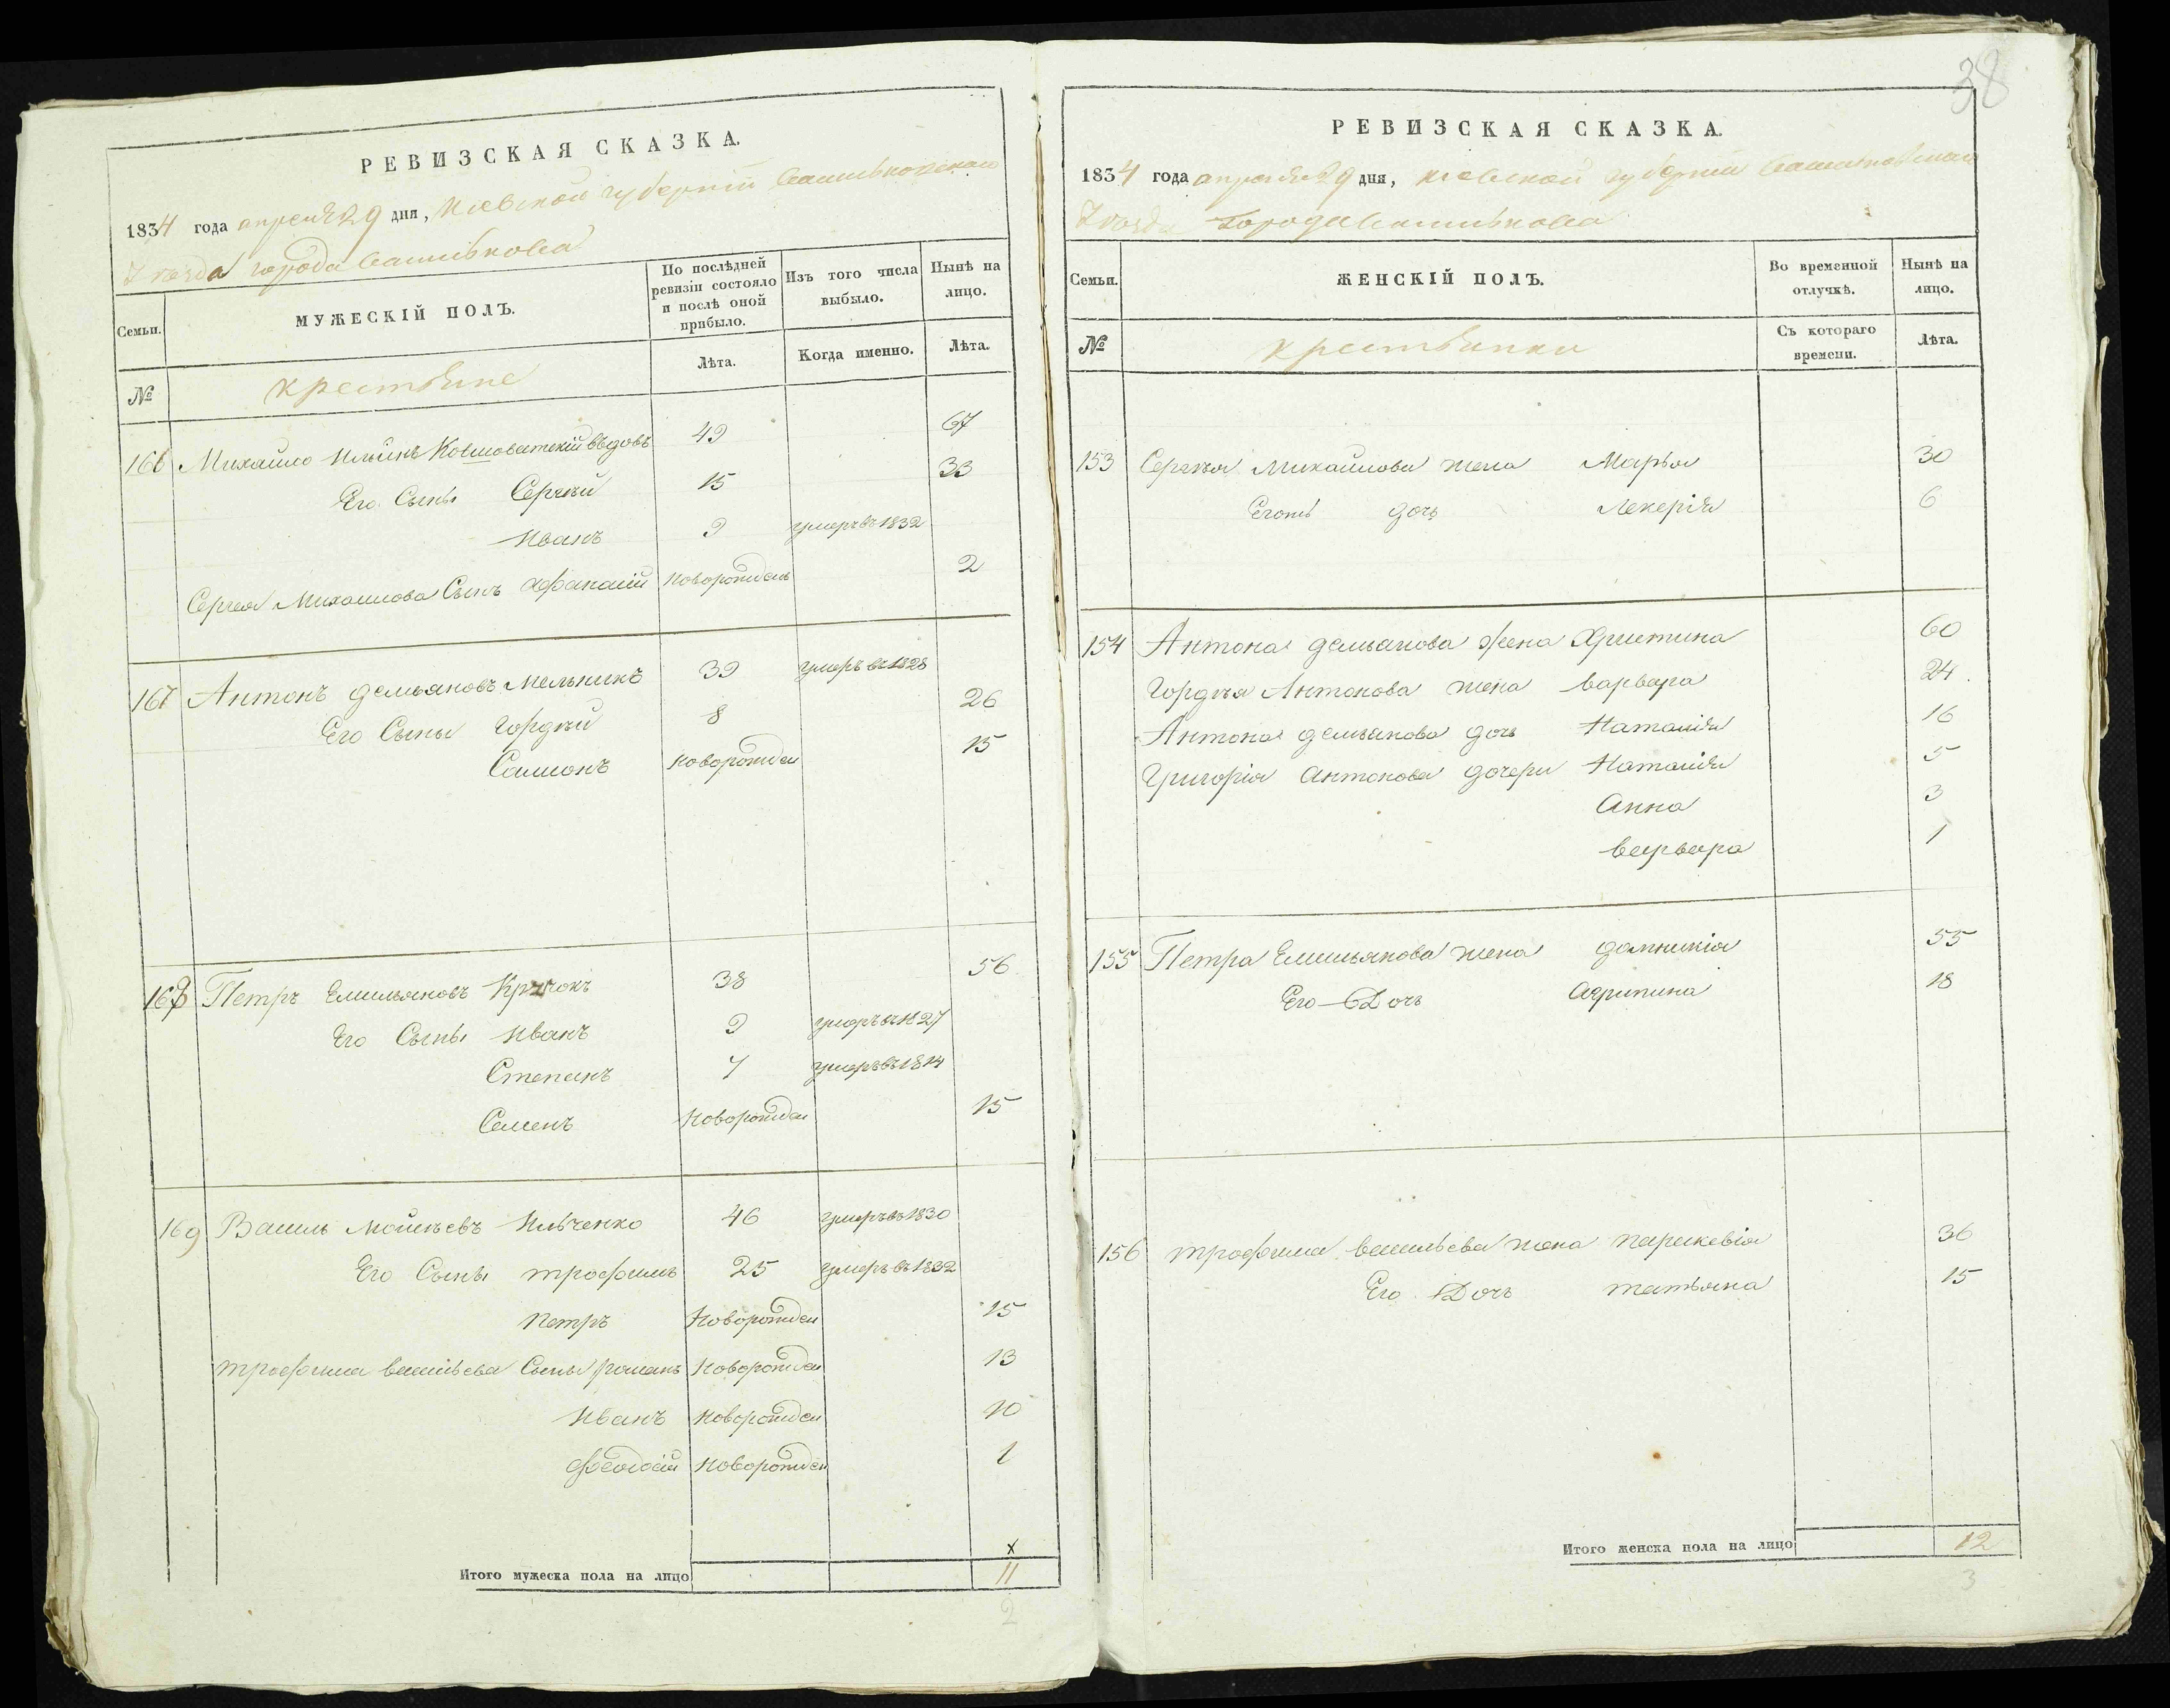 РЕВИЗСКАЯ СКАЗКА.
1834 года апреля 29 дня, Киевской губернии Васильковского
Уезда города Василькова
Семьи. МУЖЕСКІЙ ПОЛЪ. По послѣдней ревизіи состояло и послѣ оной прибыло. Изъ того числа выбыло. Нынѣ на лицо.
№ крестьяне Лѣта. Когда именно. Лѣта.
166 Михайло Ильинъ Ковшоватскій вдовъ 49 67
Его Сыны Сергѣй 15 33
Иванъ 9 умеръ въ 1832
Сергея Михайлова Сынъ Афанасій Новорожден 2
167 Антонъ демьяновъ Мельникъ 39 умеръ въ 1828
Его Сыны Гордѣй 8 26
Самсонъ новорожден 15
168 Петръ Емильяновъ Крючокъ 38 56
Его Сыны Иванъ 9 умеръ въ 1827
Степанъ 7 умеръ въ 1814
Семенъ Новорожден 15
169 Василь Мойсѣевъ Ильченко 46 умеръ въ 1830
Его Сыны трофимъ 25 умеръ въ 1832
Петръ Новорожден 15
трофима васильева Сыны романъ Новорожден 13
Иванъ Новорожден 10
Феодосій Новорожден 1
х
Итого мужеска пола на лицо 11
2
38
РЕВИЗСКАЯ СКАЗКА.
1834 года апреля 29 дня, Киевской губернии Васильковского
Уезда Города Василькова
Семьи. ЖЕНСКІЙ ПОЛЪ. Во временной отлучкѣ. Нынѣ на лицо.
№ крестьянки Съ котораго времени. Лѣта.
153 Сергѣя Михайлова жена Марья 30
дочь Лекерія 6
154 Антона демьанова жена Христина 60
Гордѣя Антонова жена варвара 24
Антона демьянова дочь Наталія 16
Григорія Антонова дочери Наталія 5
Анна 3
варвара 1
155 Петра Емильянова жена домникія 55
Его Дочь Агрипина 18
156 трофима васильева жена параскевія 36
Его Дочь татьяна 15
Итого женска пола на лицо 12
3